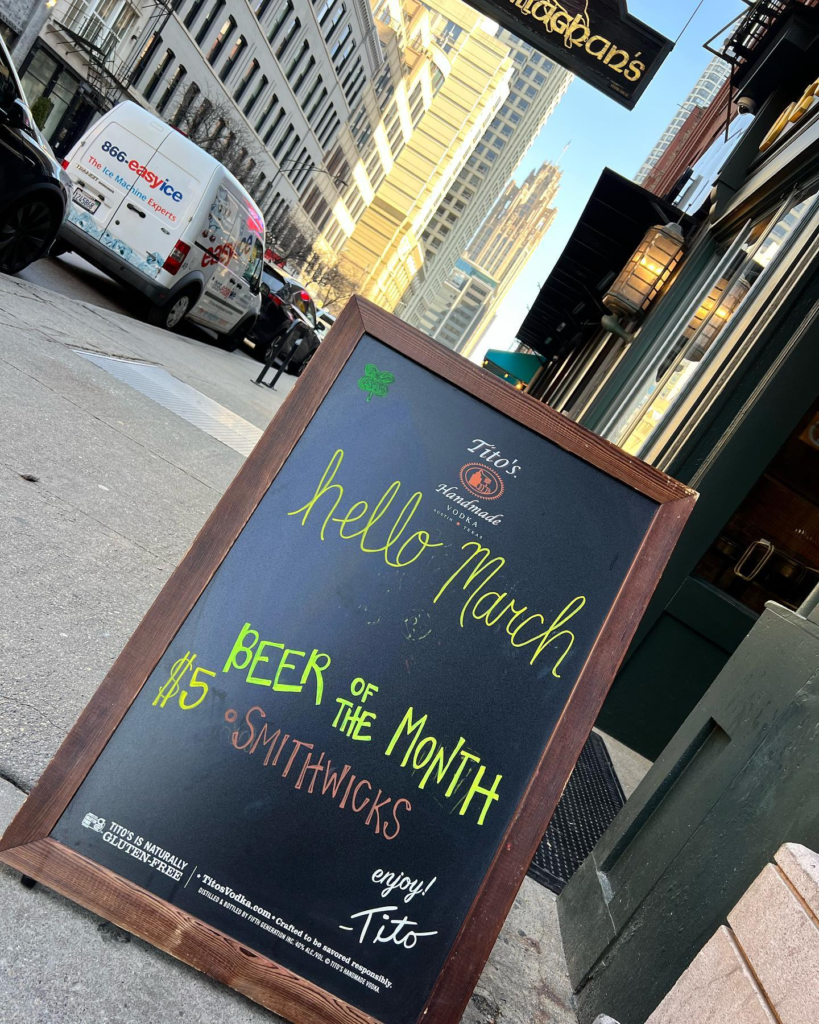 866-easyice
The Ice Machine Experts
Tito's
Handmade
VODKA
AUSTIN TEXAS
hello March
$5 BEER OF THE MONTH
SMITHWICKS
TITO'S IS NATURALLY
GLUTEN-FREE
TitosVodka.com • Crafted to be savored responsibly.
DISTILLED & BOTTLED BY FIFTH GENERATION INC. 40% ALC./VOL. © TITO'S HANDMADE VODKA.
enjoy!
-Tito